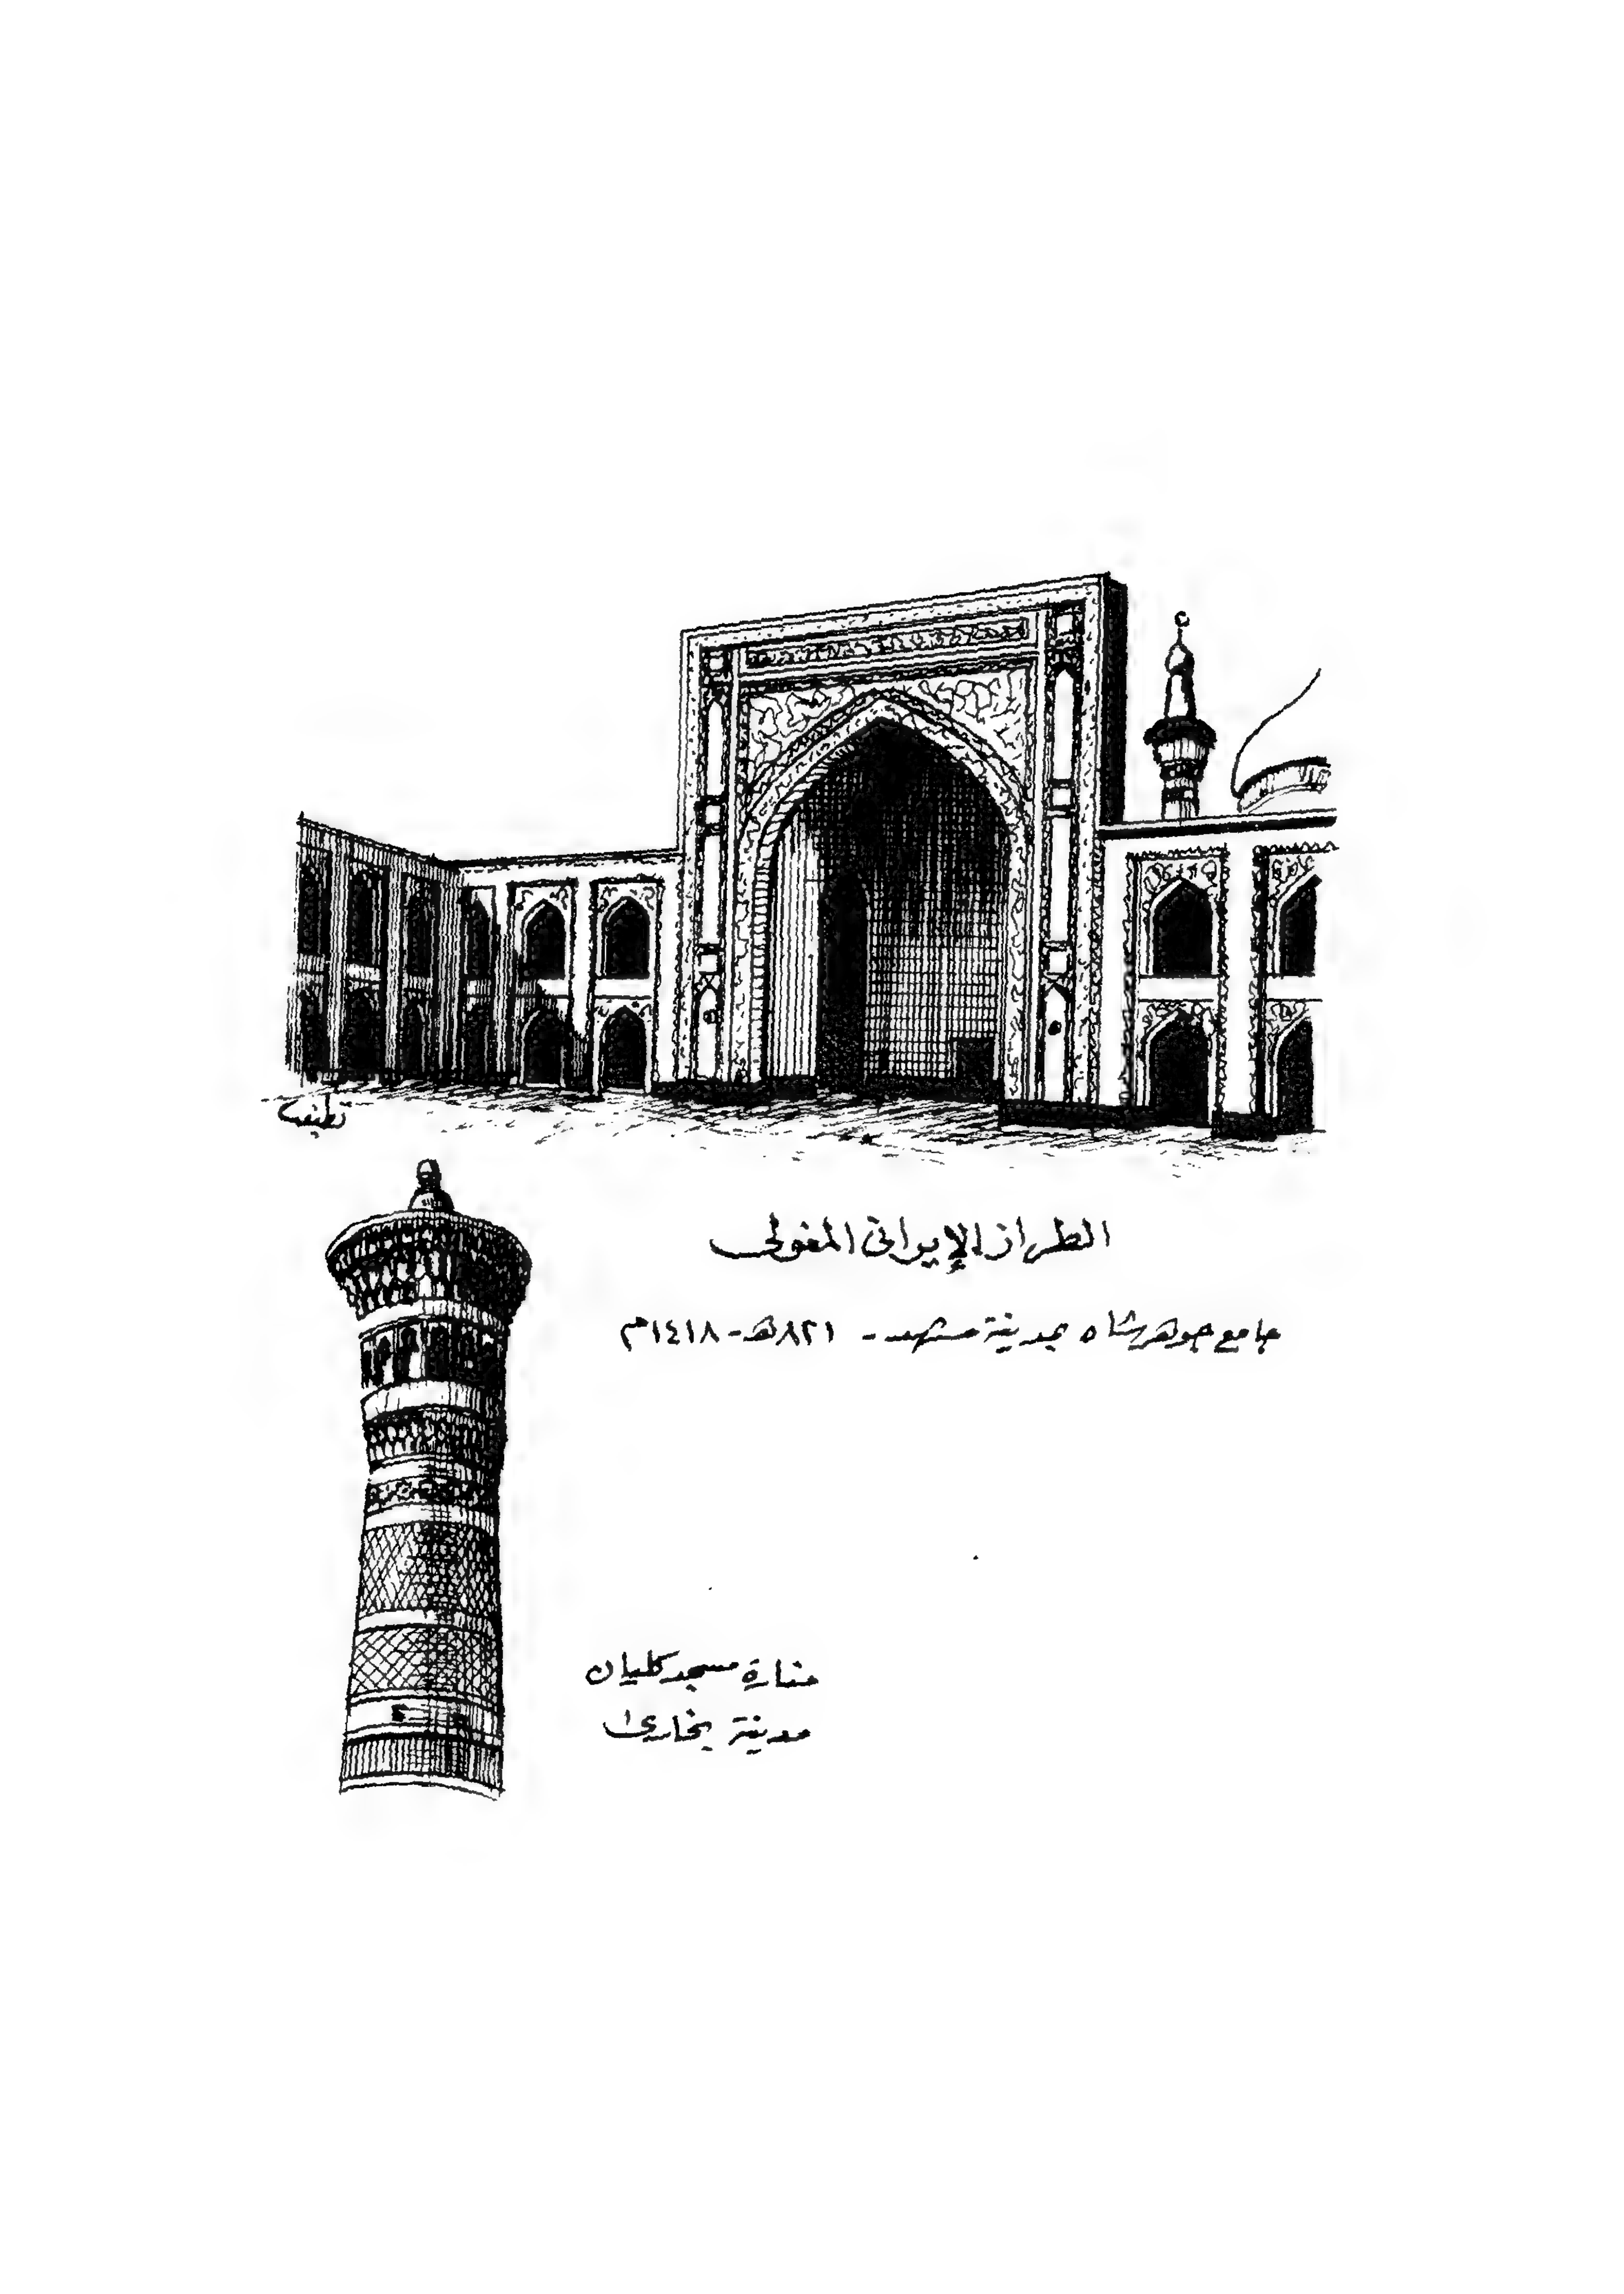 الطراز الإيرانى المغولى
جامع جوهر شاه بمدينة مشهد - ٨٢١هـ - ١٤١٨م
منارة مسجد كليان
مدينة بخارى